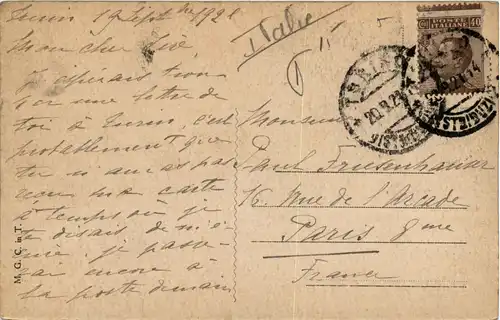 Turin 19 Sept bre 1921
Mon cher Père,
J'espérais trou-
ver une lettre de
toi à Turin, c'est
probablement que
tu n'auras pas
reçu ma carte
à temps où je
te disais de m'é-
crire. Je passe-
rai encore à
la poste demain
Italie
M. G. C. in T.
POSTE
ITALIANE
40
TORINO
20.9.21
Monsieur
Paul Friesenhauser
16 Rue de l'Arcade
Paris 8me
France